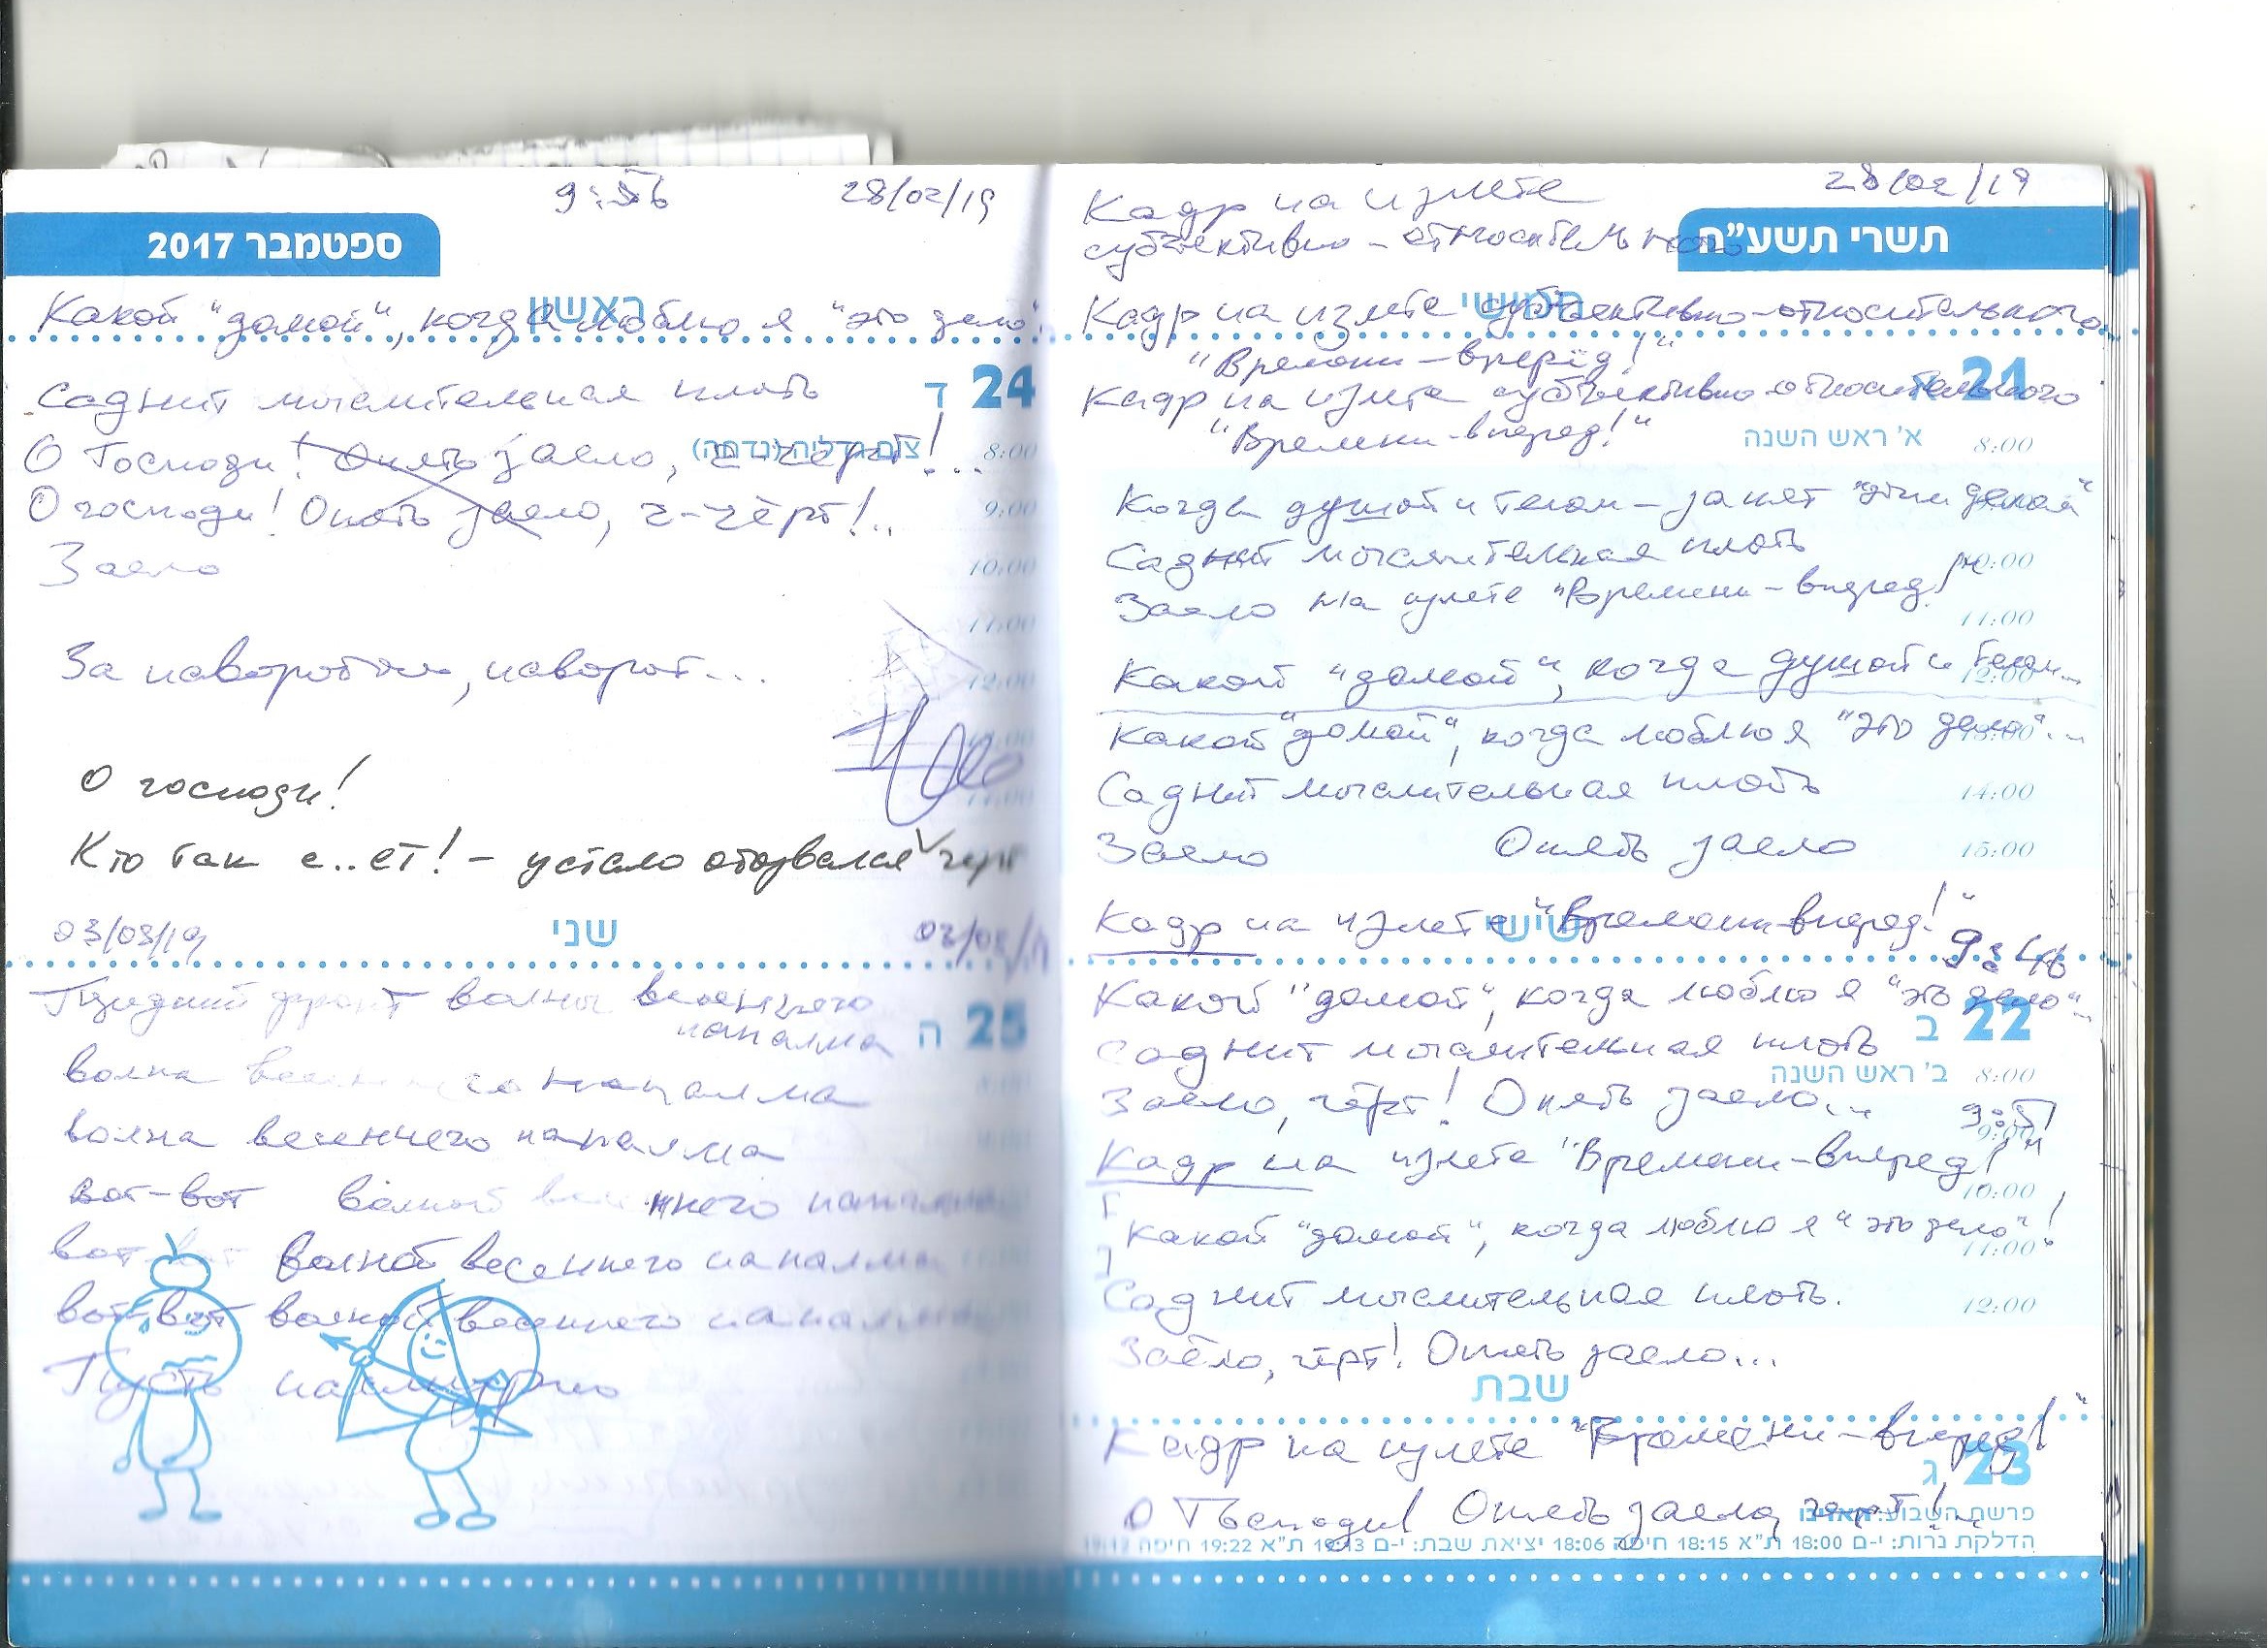 9:56 28/02/19
ספטמבר 2017
ראשון
Какой "домой", когда люблю я "это дело"
24 ד
Саднит мыслительная плоть
צום גדליה (נדחה)
8:00
О Господи! Опять заело, ч-черт!...
9:00
О господи! Опять заело, ч-чёрт!..
10:00
Заело
11:00
За поворотом, поворот...
12:00
О господи!
Кто так с..ет! – устало отозвался черт
03/03/19 שני 03/03/19
фронт волны весеннего
напалма
25 ה
волна весеннего напалма
волна весеннего напалма
вот-вот волной весеннего напалма
вот-вот волной весеннего напалма
вот-вот волной весеннего напалма
Пусть
Кадр на излете 28/02/19
субъективно-относительного
תשרי תשע"ח
חמישי
Кадр на излете субъективно-относительного
"Времени-вперёд!"
21 א
Кадр на излете субъективно-относительного
"Времени-вперед!"
א' ראש השנה 8:00
Когда душой и телом – занят "этим делом"
Саднит мыслительная плоть
10:00
Заело на излете "Времени-вперед!"
11:00
Какой "домой", когда душой и телом...
12:00
Какой "домой", когда люблю я "это дело"...
13:00
Саднит мыслительная плоть
14:00
Заело Опять заело
15:00
שישי
Кадр на излете "Времени-вперед!"
9:46
Какой "домой", когда люблю я "это дело"...
22 ב
Саднит мыслительная плоть
ב' ראש השנה 8:00
Заело, чёрт! Опять заело...
9:51
9:00
Кадр на излете "Времени-вперед!"
10:00
Какой "домой", когда люблю я "это дело"!
11:00
Саднит мыслительная плоть.
12:00
Заело, чёрт! Опять заело...
שבת
Кадр на излете "Времени-вперед!"
23 ג
О Господи! Опять заело, черт!
פרשת השבוע: האזינו
הדלקת נרות: י-ם 18:00 ת"א 18:15 חיפה 18:06 יציאת שבת: י-ם 19:13 ת"א 19:22 חיפה 19:12